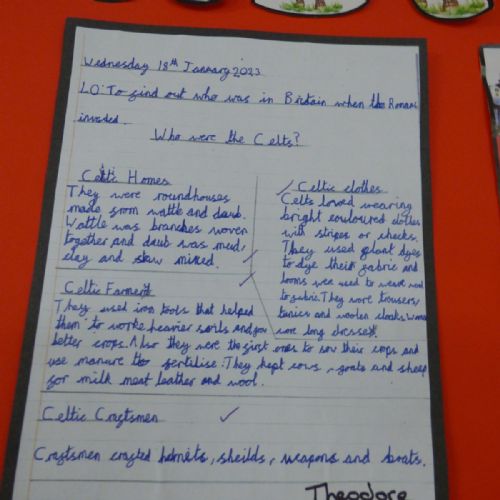 Wednesday 18th January 2023
LO: To find out who was in Britain when the Romans
invaded.
Who were the Celts?
Celtic Homes
They were roundhouses
made from wattle and daub.
Wattle was branches woven
together and daub was mud,
clay and straw mixed.
Celtic clothes
Celts loved wearing
bright couloured clothes
with stripes or checks.
They used plant dyes
to dye their fabric and
looms were used to weave wool
to fabric. They wore trousers,
tunics and woolen cloaks. Women
wore long dresses.
Celtic Farmers
They used iron tools that helped
them to worke heavier soils and
better crops. Also they were the first ones to sow their crops and
use manure to fertilise. They kept cows, goats and sheep
for milk meat leather and wool.
Celtic Craftsmen
Craftsmen crafted helmets, sheilds, weapons and boats.
Theodore